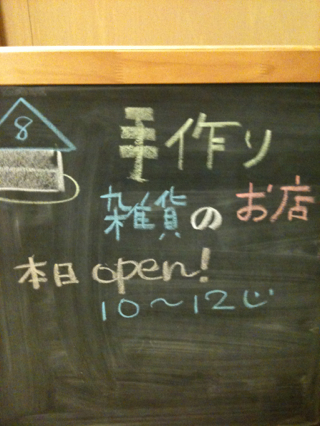 8
手作り
雑貨のお店
本日open!
10〜12じ